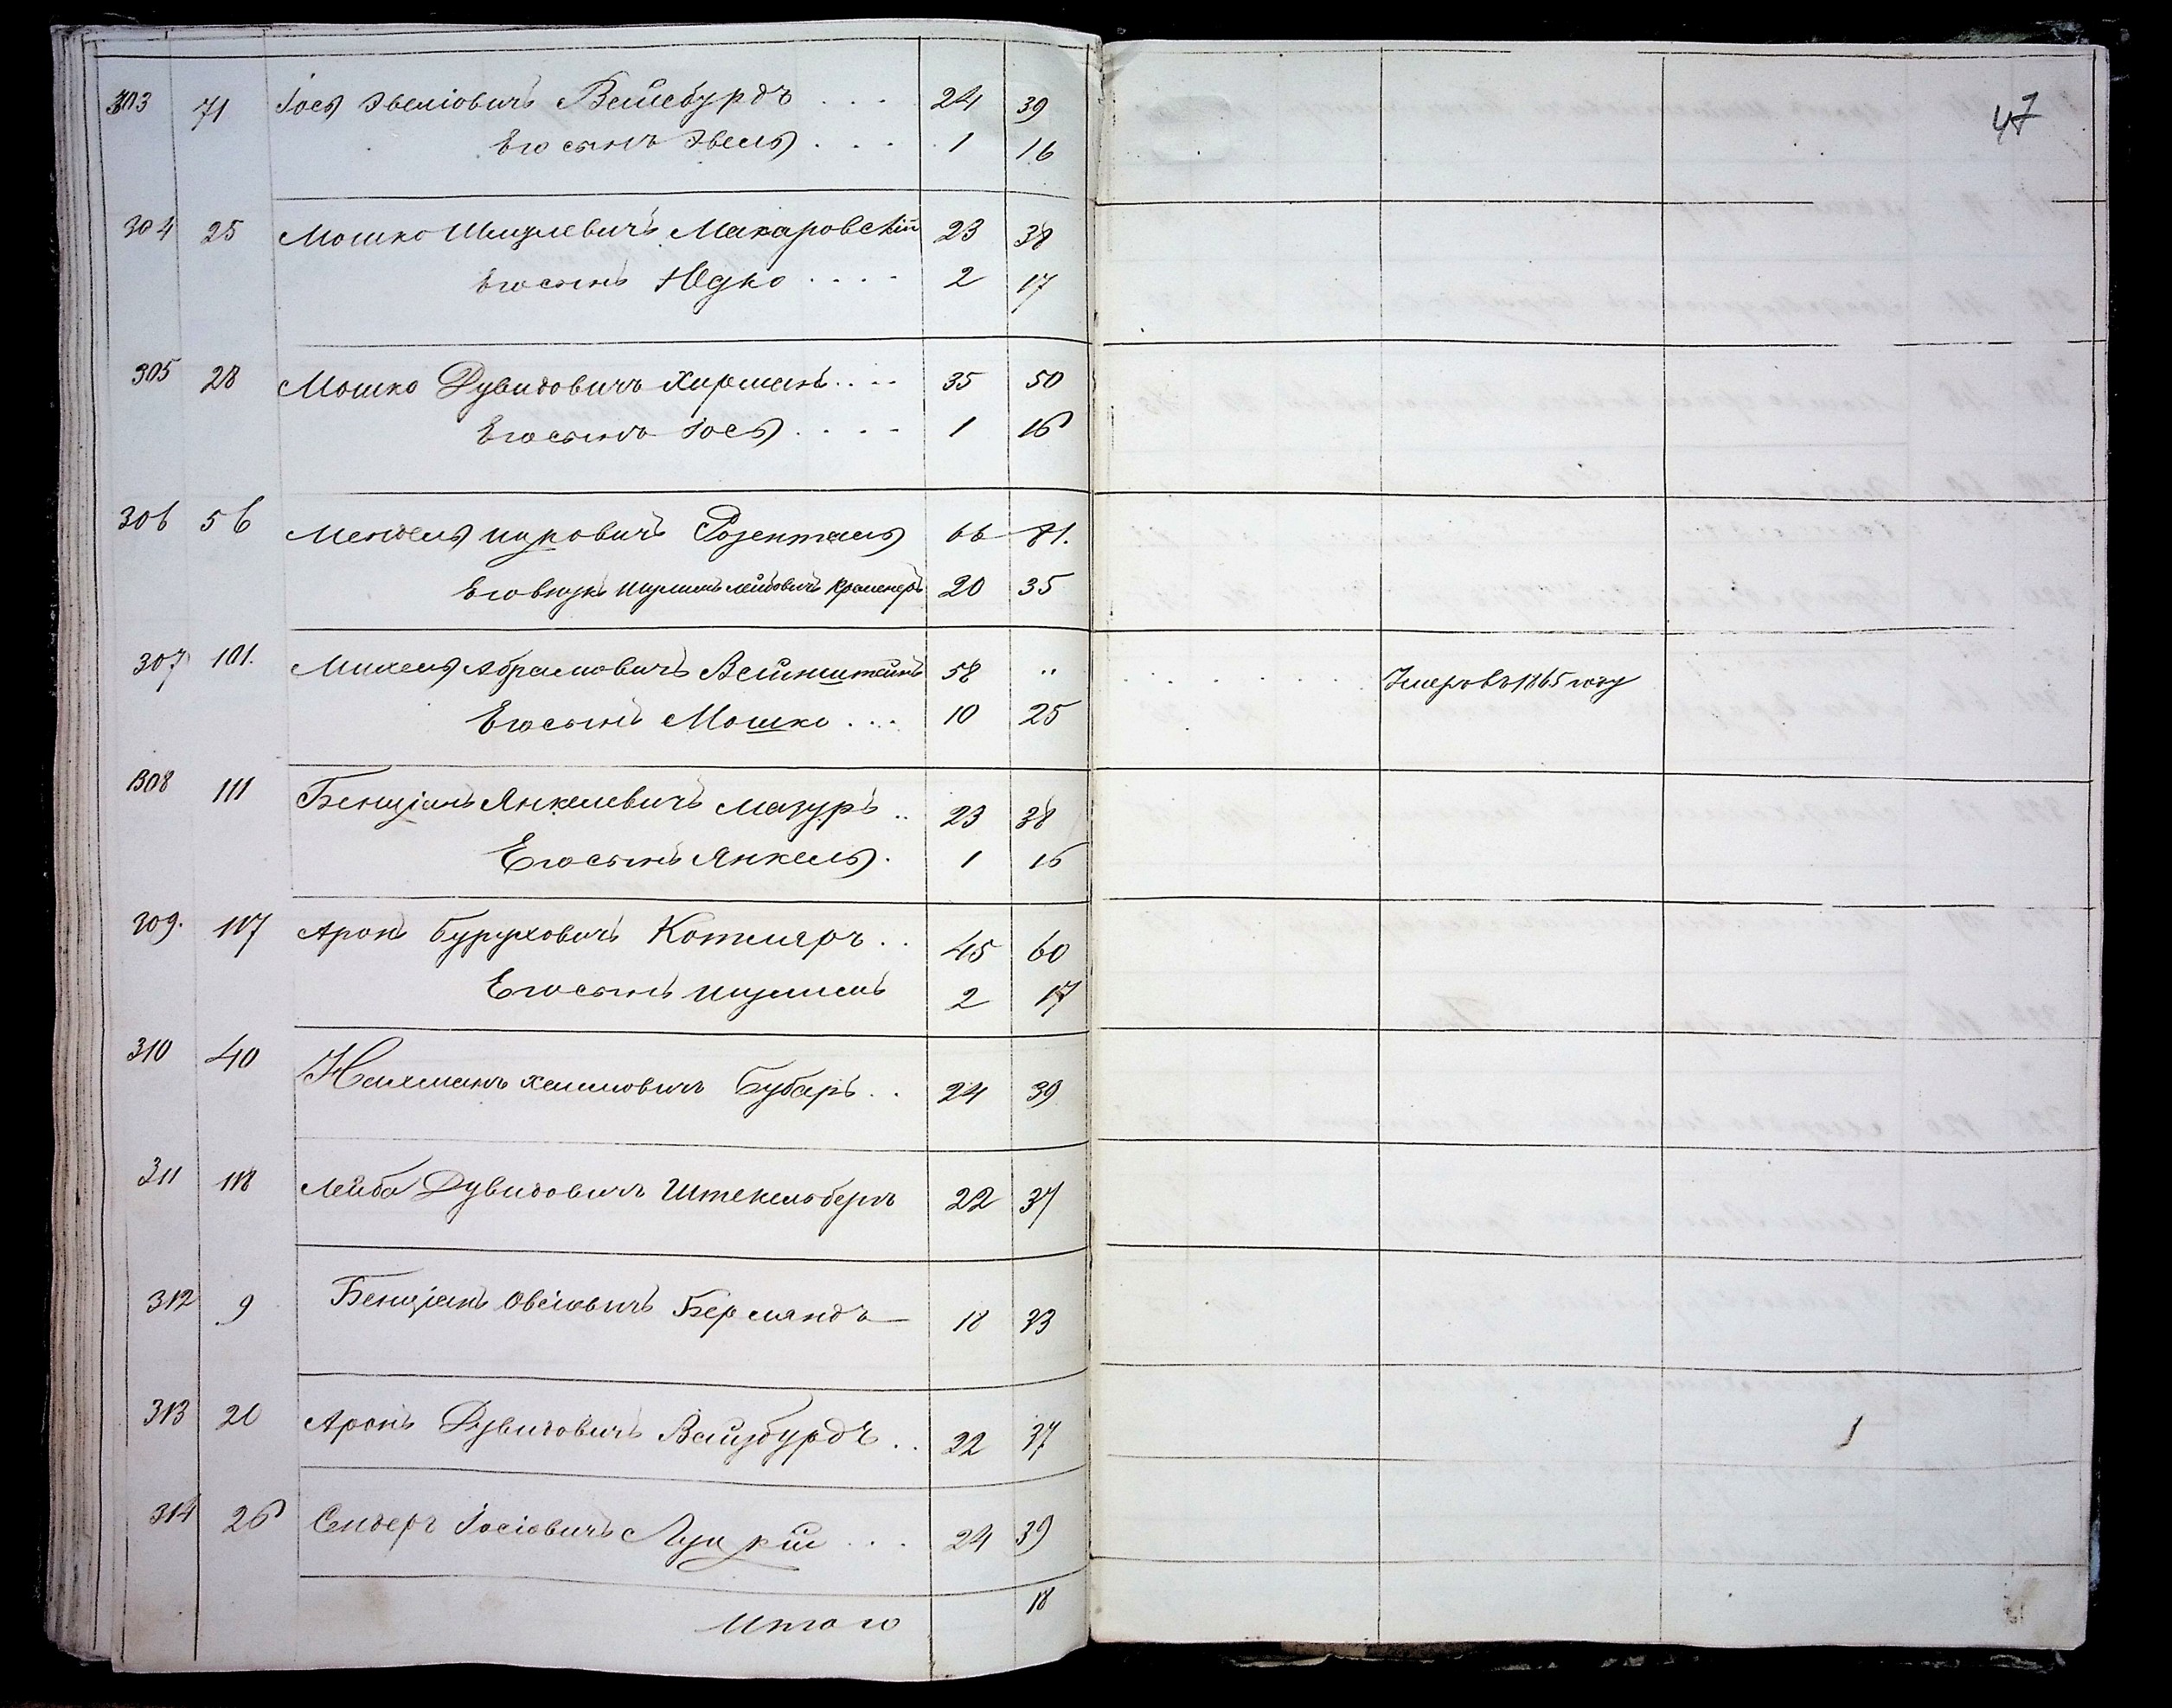 47
303 71 Іось Эвеліовичъ Вейсбурдъ . . . 24 39
Его сынъ Эвель . . . . 1 16
304 25 Мошко Шмулевичъ Макаровскій 23 38
Его сынъ Юдко . . . . 2 17
305 28 Мошко Дувидовичъ Хирманъ . . . . 35 50
Его сынъ Іось . . . . 1 16
306 56 Мендель Розенталь 66 81.
Его внукъ Шулимъ Лейбовичъ 20 35
307 101. Михель Абрамовичъ Вейнштейнъ 58 " . . . . . . . Умеръ въ 1865 году
Его сынъ Мошко . . . 10 25
308 111 Бенціанъ Янкелевичъ Мазуръ . . 23 38
Его сынъ Янкель . 1 16
309. 117 Аронъ Буруховичъ Котляръ . . 45 60
Его сынъ Шулимъ 2 17
310 40 Нахманъ Хаимовичъ Бубаръ . . 24 39
311 118 Лейба Дувидовичъ Штекельбергъ 22 37
312 9 Бенціанъ Овсіовичъ Берляндъ 18 33
313 20 Аронъ Дувидовичъ Вайзбурдъ . . 22 37 1
314 26 Сендеръ Іосіовичъ Луцкій . . . 24 39
Итого 18